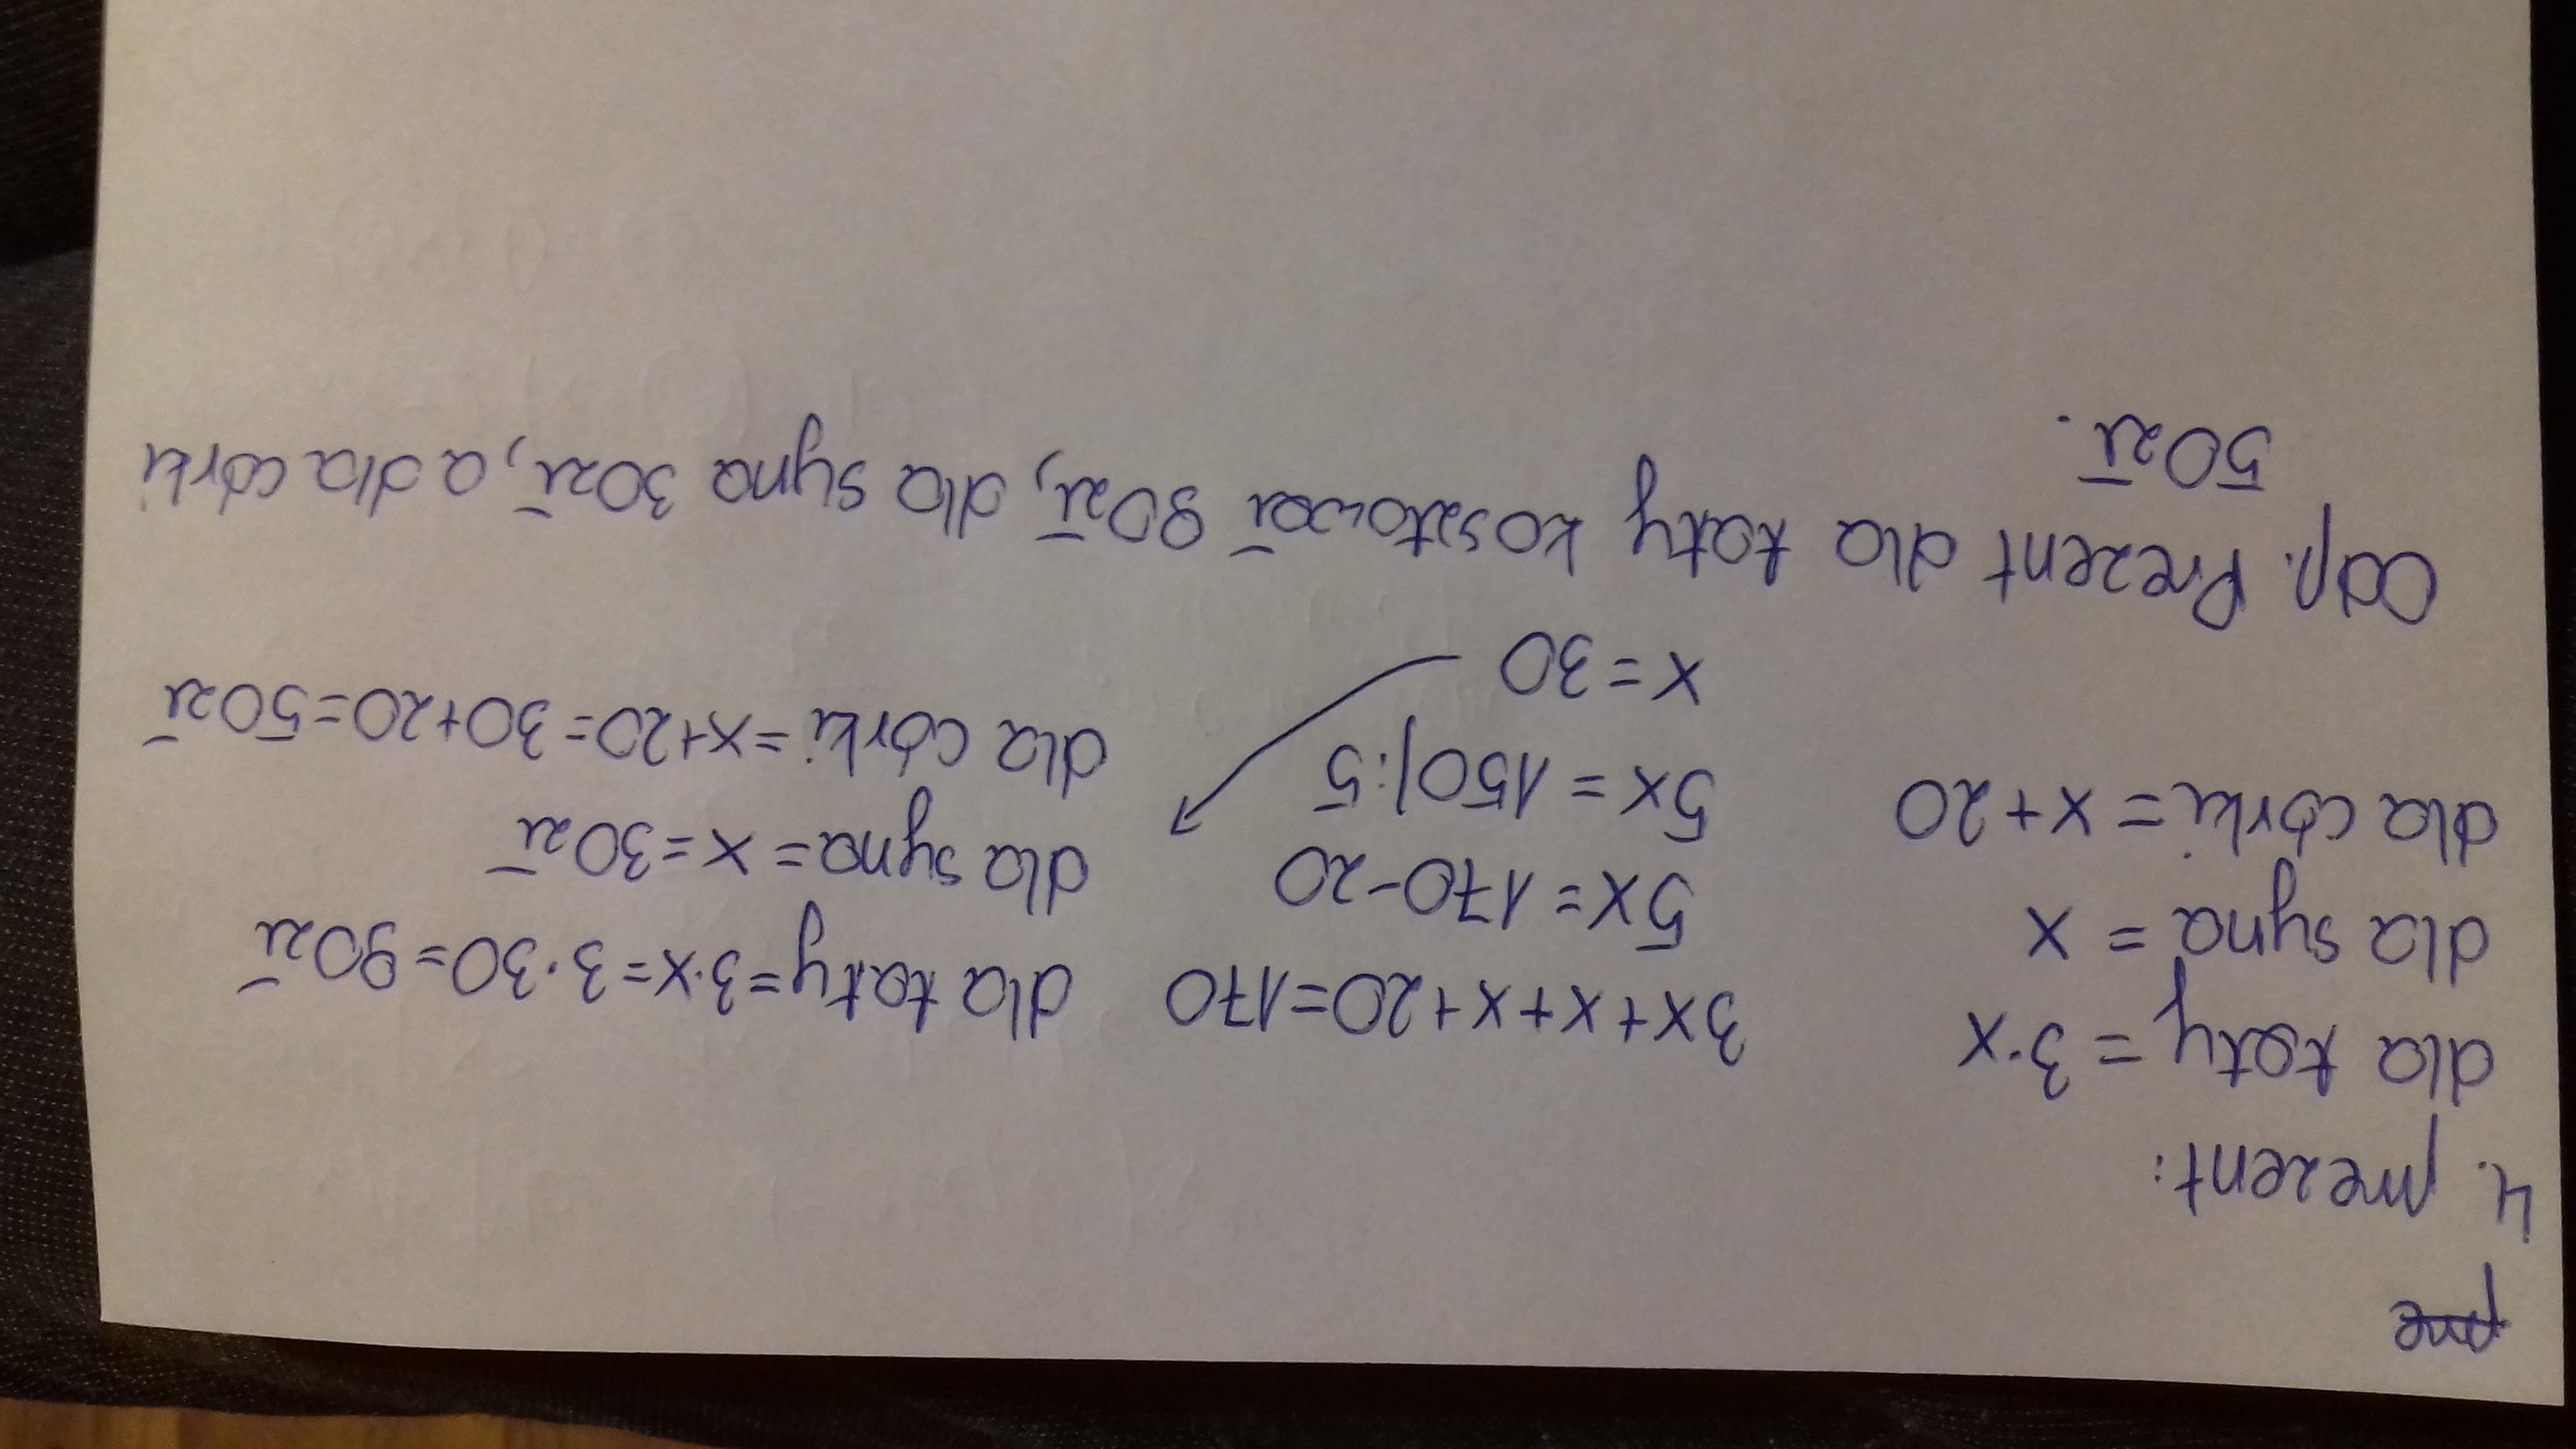 pre
4. prezent:
dla taty = 3·x
dla syna = x
dla córki = x+20
3x+x+x+20=170
5x=170-20
5x=150/:5
x=30
dla taty=3·x=3·30=90zł
dla syna=x=30zł
dla córki=x+20=30+20=50zł
Odp. Prezent dla taty kosztował 90zł, dla syna 30zł, a dla córki
50zł.